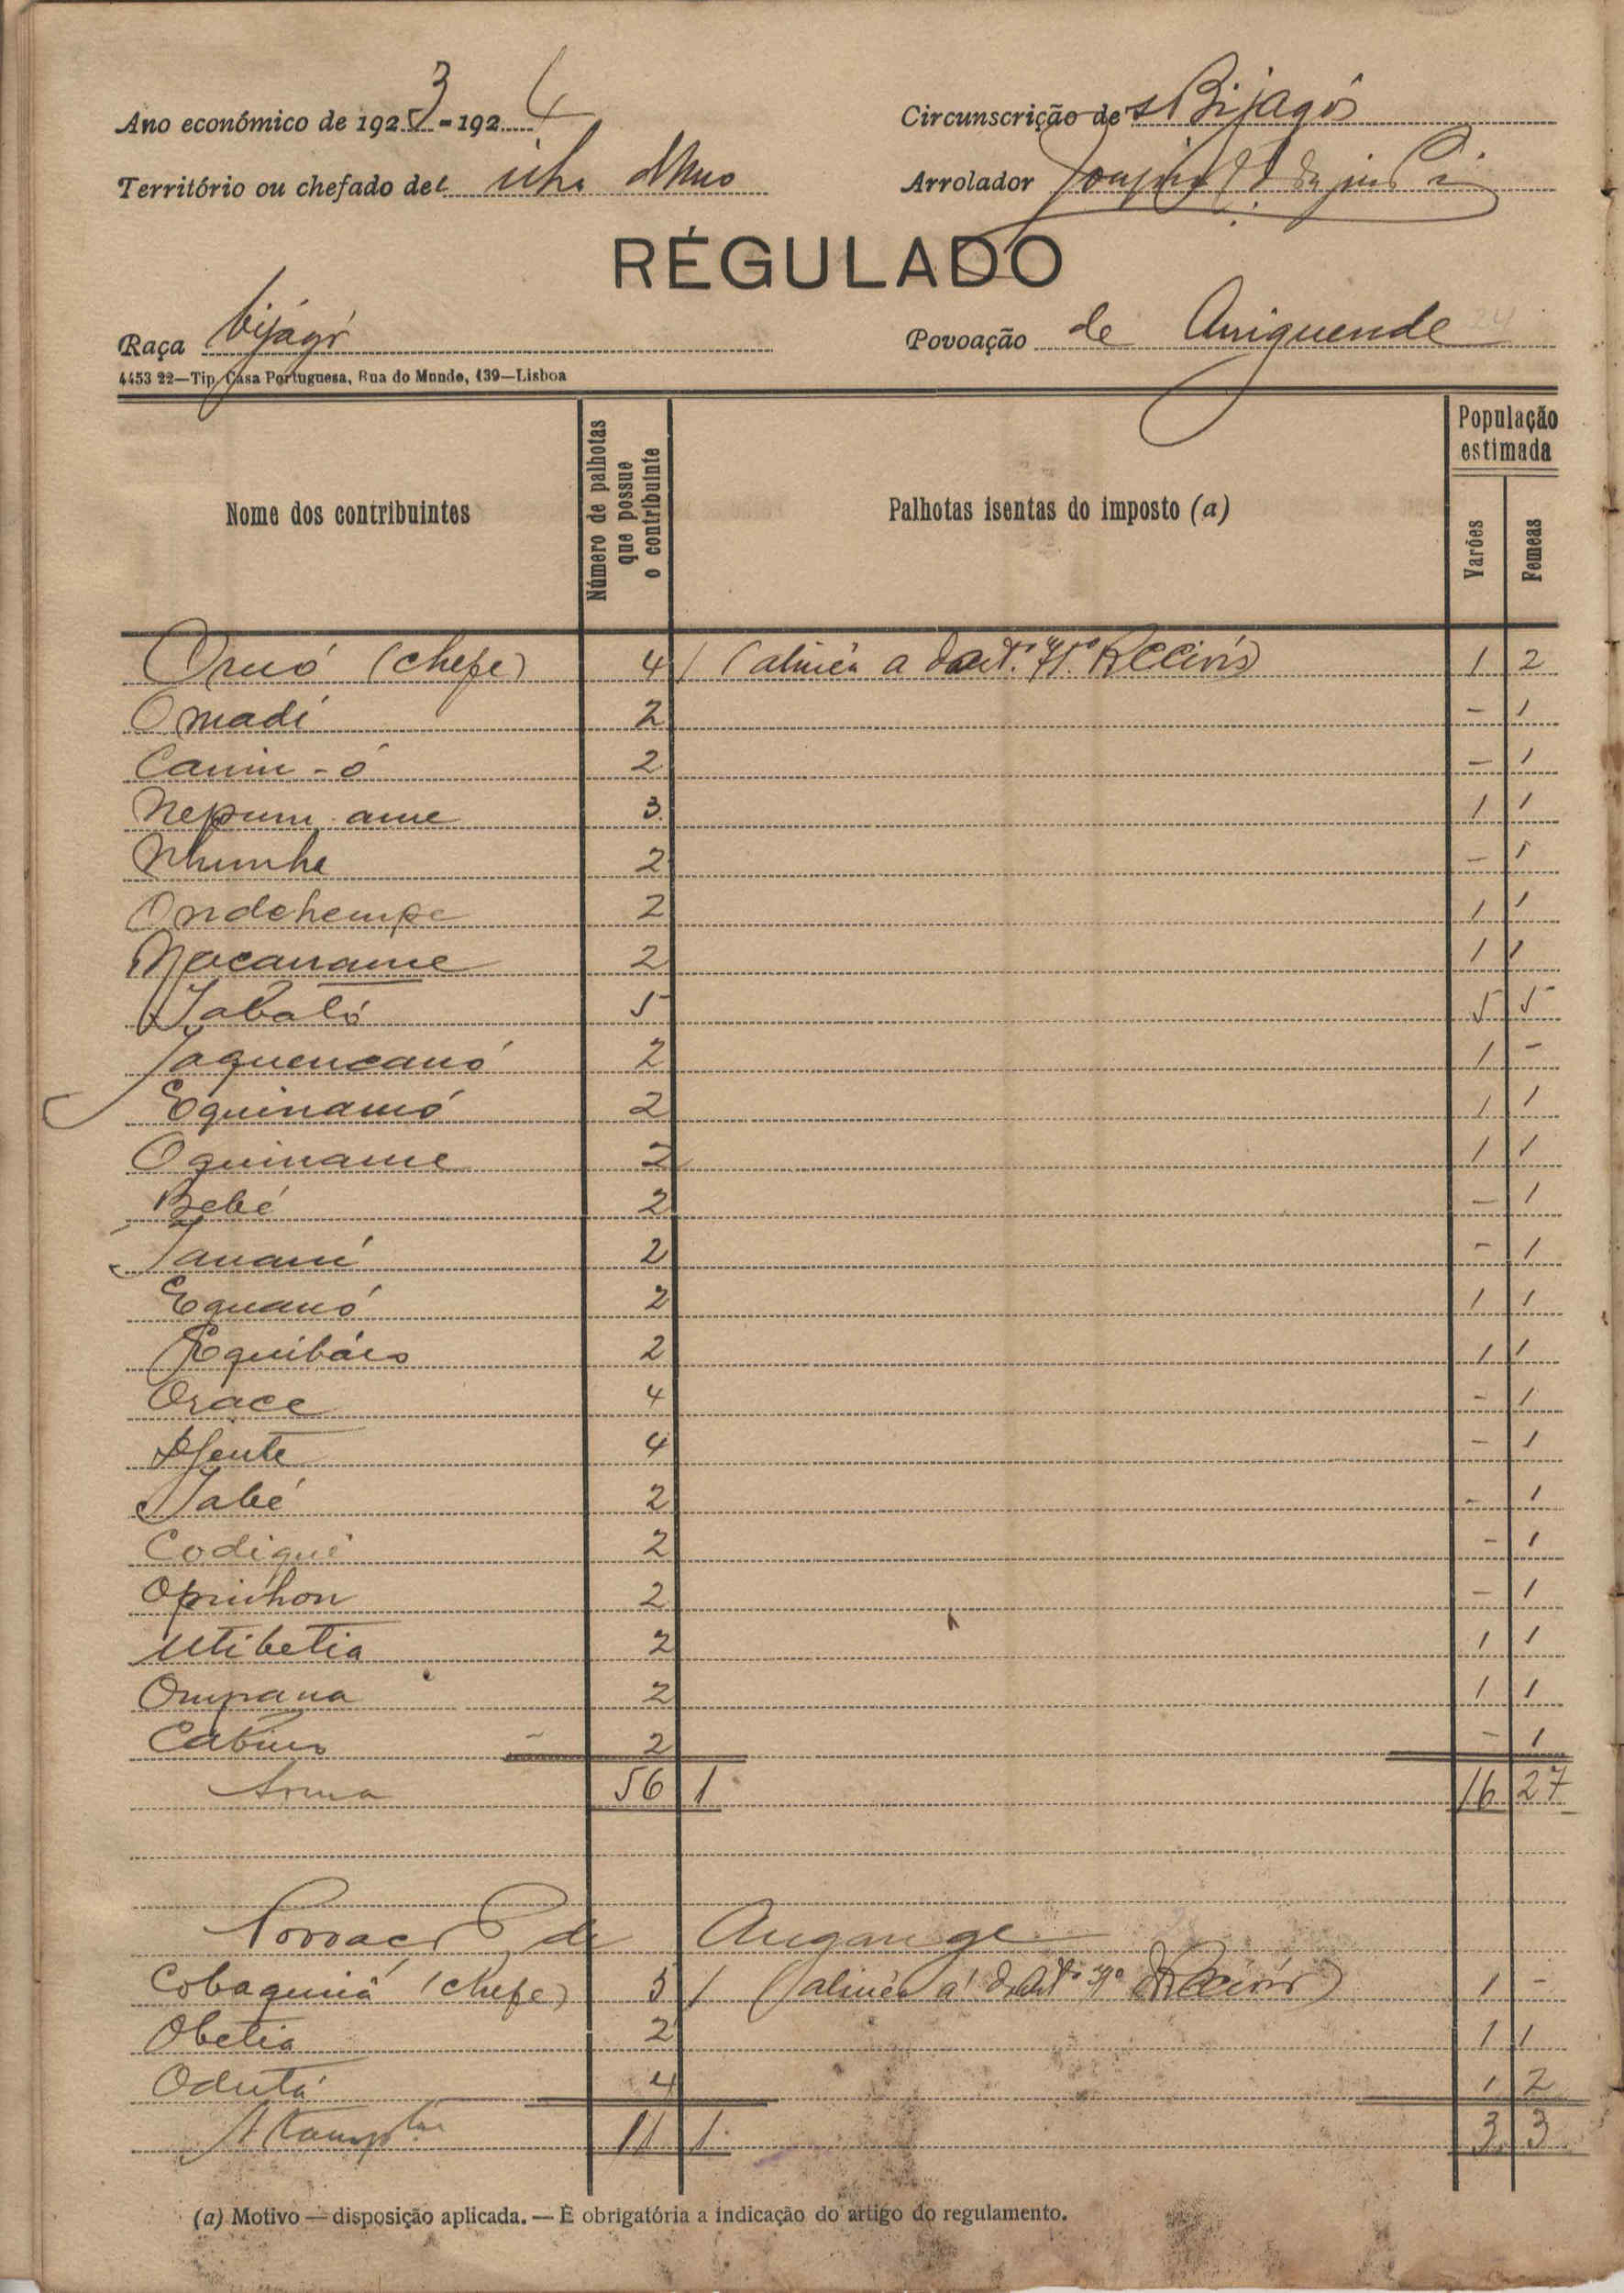 Ano económico de 1923-1924
Circunscrição de Bijagós
Território ou chefado de ilha
Arrolador
RÉGULADO
Raça bijagó
Povoação de Aniguende
4453 22—Tip. Casa Portuguesa, Rua do Mundo, 139—Lisboa
Nome dos contribuintes
Número de palhotas que possue o contribuinte
Palhotas isentas do imposto (a)
População estimada
Varões
Femeas
(chefe) 4 1 (alinéa a do art.º 1 2
Omadi 2 - 1
Canin-ó 2 - 1
Nepum ame 3 1 1
Nhunha 2 - 1
Ondehempe 2 1 1
Nocaname 2 1 1
Jabaló 5 5 5
Jaquencanó 2 1 -
Equinamó 2 1 1
Oquiname 2 1 1
Bebé 2 - 1
2 - 1
Equanó 2 1 1
Equibáis 2 1 1
Orace 4 - 1
4 - 1
Jabé 2 - 1
Codiqué 2 - 1
Opinhon 2 - 1
Utibetia 2 1 1
Ompana 2 1 1
2 - 1
Soma 56 1 16 27
Povoação de Angange
Cobaquiná (chefe) 5 1 (alinéa a do art.º 1 -
Obetia 2 1 1
Odutá 4 1 2
11 1 3 3
(a) Motivo — disposição aplicada. — É obrigatória a indicação do artigo do regulamento.